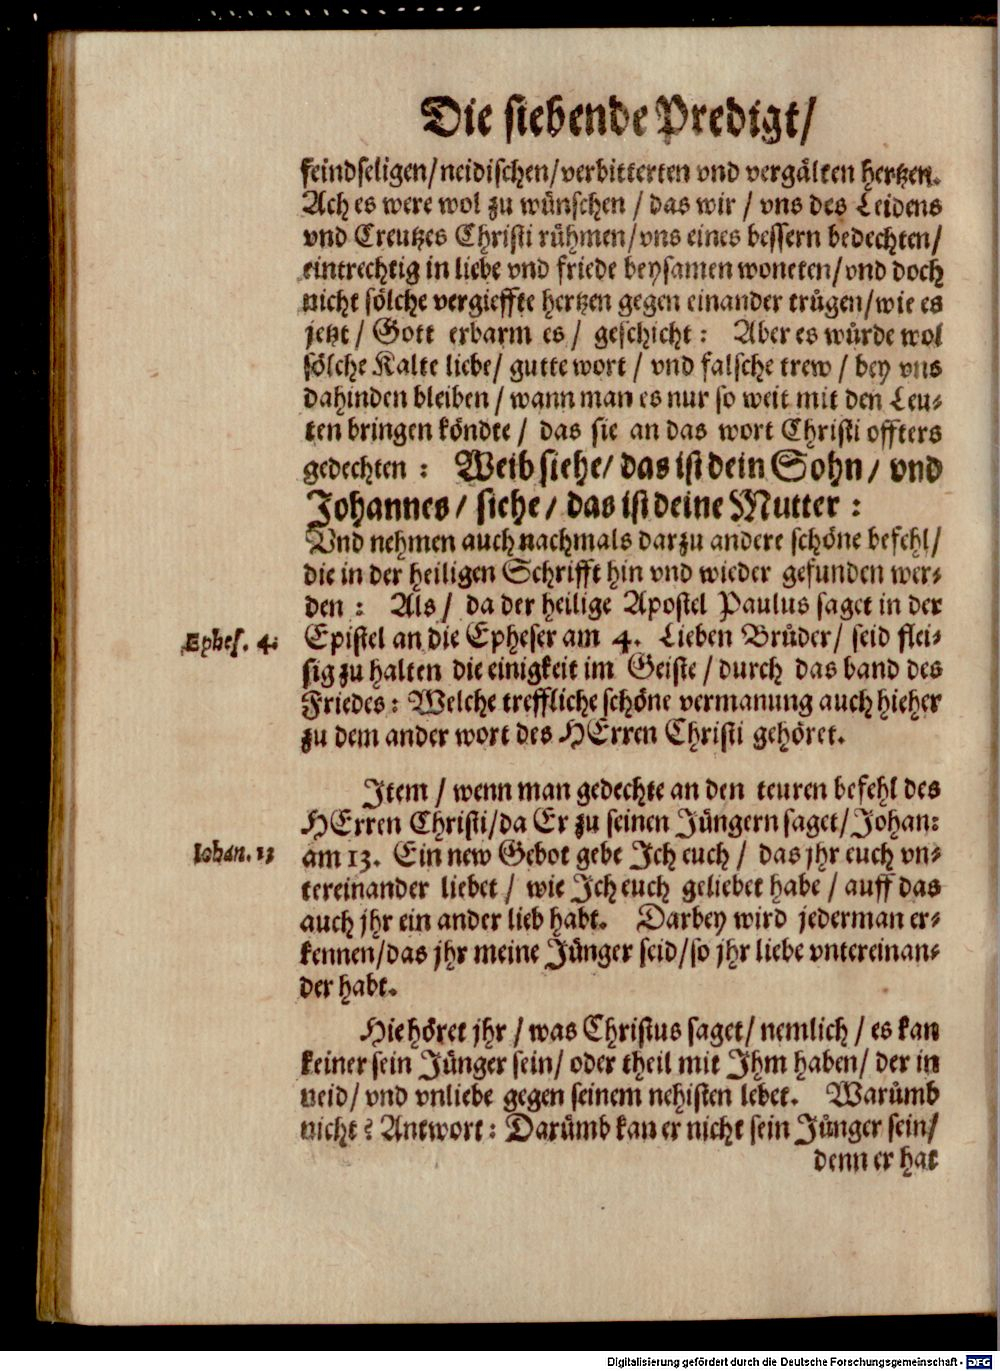 Die siebende Predigt/
feindseligen/neidischen/verbitterten vnd vergälten hertzen.
Ach es were wol zu wünschen / das wir / vns des Leidens
vnd Creutzes Christi rühmen/vns eines bessern bedechten/
eintrechtig in liebe vnd friede beysamen woneten/vnd doch
nicht sölche vergieffte hertzen gegen einander trügen/wie es
jetzt / Gott erbarm es / geschicht: Aber es würde wol
sölche Kalte liebe/ gutte wort / vnd falsche trew / bey vns
dahinden bleiben / wann man es nur so weit mit den Leu-
ten bringen köndte / das sie an das wort Christi offters
gedechten : Weib siehe/ das ist dein Sohn / vnd
Johannes / siehe / das ist deine Mutter :
Vnd nehmen auch nachmals darzu andere schöne befehl/
die in der heiligen Schrifft hin vnd wieder gefunden wer-
den : Als / da der heilige Apostel Paulus saget in der
Ephes. 4. Epistel an die Epheser am 4. Lieben Brüder/ seid flei-
sig zu halten die einigkeit im Geiste / durch das band des
Friedes: Welche treffliche schöne vermanung auch hieher
zu dem ander wort des HErren Christi gehöret.
Item / wenn man gedechte an den teuren befehl des
HErren Christi/da Er zu seinen Jüngern saget/Johan:
Iohan. 13 am 13. Ein new Gebot gebe Ich euch / das jhr euch vn-
tereinander liebet / wie Ich euch geliebet habe / auff das
auch jhr ein ander lieb habt. Darbey wird jederman er-
kennen/das jhr meine Jünger seid/so jhr liebe vntereinan-
der habt.
Hie höret jhr / was Christus saget/ nemlich / es kan
keiner sein Jünger sein/ oder theil mit Ihm haben/ der in
neid/ vnd vnliebe gegen seinem nehisten lebet. Warümb
nicht? Antwort: Darümb kan er nicht sein Jünger sein/
denn er hat
Digitalisierung gefördert durch die Deutsche Forschungsgemeinschaft - DFG